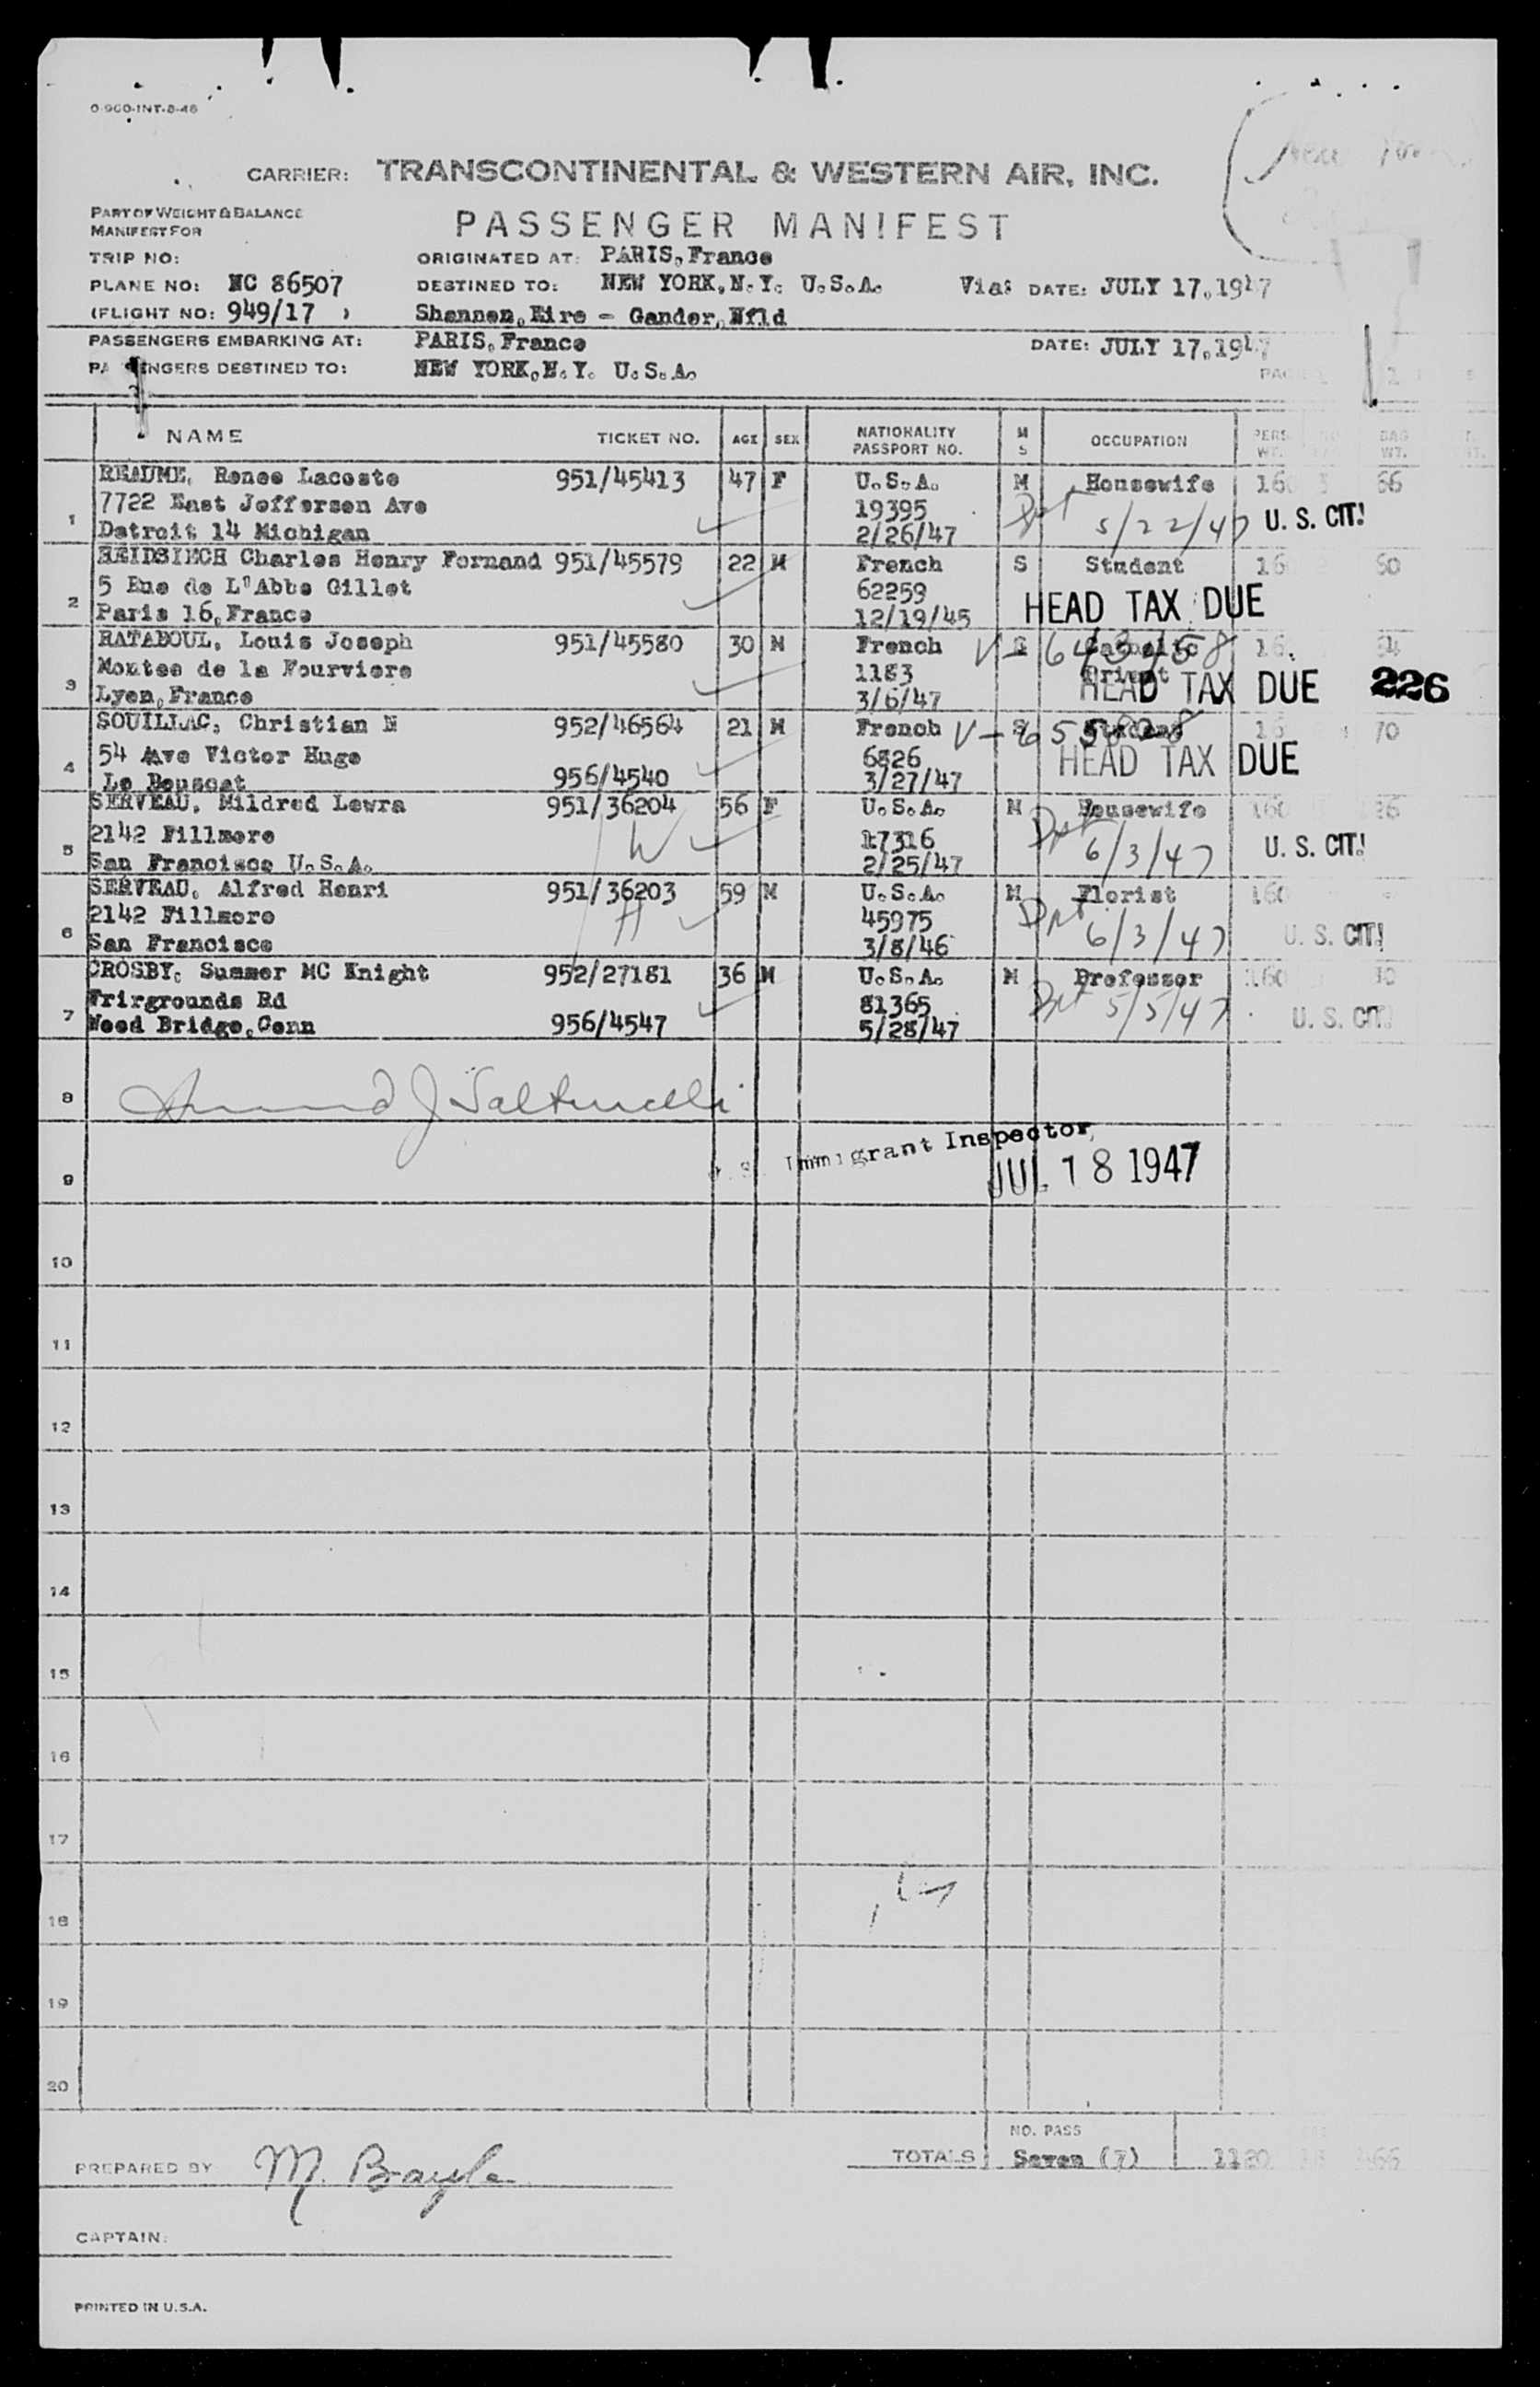 0-900-INT-8-46
CARRIER: TRANSCONTINENTAL & WESTERN AIR, INC.
PART OF WEIGHT & BALANCE
MANIFEST FOR
PASSENGER MANIFEST
TRIP NO: ORIGINATED AT: PARIS, France
PLANE NO: NC 86507 DESTINED TO: NEW YORK, N.Y. U.S.A. Via: DATE: JULY 17, 1947
(FLIGHT NO: 949/17 ) Shannon, Eire - Gander, Nfld
PASSENGERS EMBARKING AT: PARIS, France DATE: JULY 17, 1947
PASSENGERS DESTINED TO: NEW YORK, N.Y. U.S.A.
NAME TICKET NO. AGE SEX NATIONALITY PASSPORT NO. M S OCCUPATION PERS WT. BAG WT.
REAUME, Renee Lacoste 951/45413 47 F U.S.A. M Housewife 160 66
7722 East Jefferson Ave 19395 Dpt 5/22/47 U. S. CIT!
1 Detroit 14 Michigan 2/26/47
HEIDSIECH Charles Henry Fernand 951/45579 22 M French S Student 16 60
5 Rue de L'Abbe Gillet 62259
2 Paris 16, France 12/19/45 HEAD TAX DUE
RATABOUL, Louis Joseph 951/45580 30 M French S Catholic 16 54
V-643458
Montee de la Fourviere 1183 Priest
3 Lyon, France 3/6/47 HEAD TAX DUE 226
SOUILLAC, Christian N 952/46564 21 M French S Student 16 70
V-655828
54 Ave Victor Hugo 6826 HEAD TAX DUE
4 Le Bouscat 956/4540 3/27/47
SERVEAU, Mildred Lowra 951/36204 56 F U.S.A. M Housewife 160 26
2142 Fillmore W 17316 Dpt 6/3/47 U. S. CIT!
5 San Francisco U.S.A. 2/25/47
SERVEAU, Alfred Henri 951/36203 59 M U.S.A. M Florist 160
2142 Fillmore H 45975 Dpt 6/3/47 U. S. CIT!
6 San Francisco 3/8/46
CROSBY, Summer MC Knight 952/27181 36 M U.S.A. M Professor 160
Frirgrounds Rd 81365 Dpt 5/5/47 U. S. CIT!
7 Wood Bridge, Conn 956/4547 5/28/47
8
U.S. Immigrant Inspector
9 JUL 18 1947
10
11
12
13
14
15
16
17
18
19
20
NO. PASS
PREPARED BY M. Bayle TOTALS: Seven (7) 1120
CAPTAIN:
PRINTED IN U.S.A.